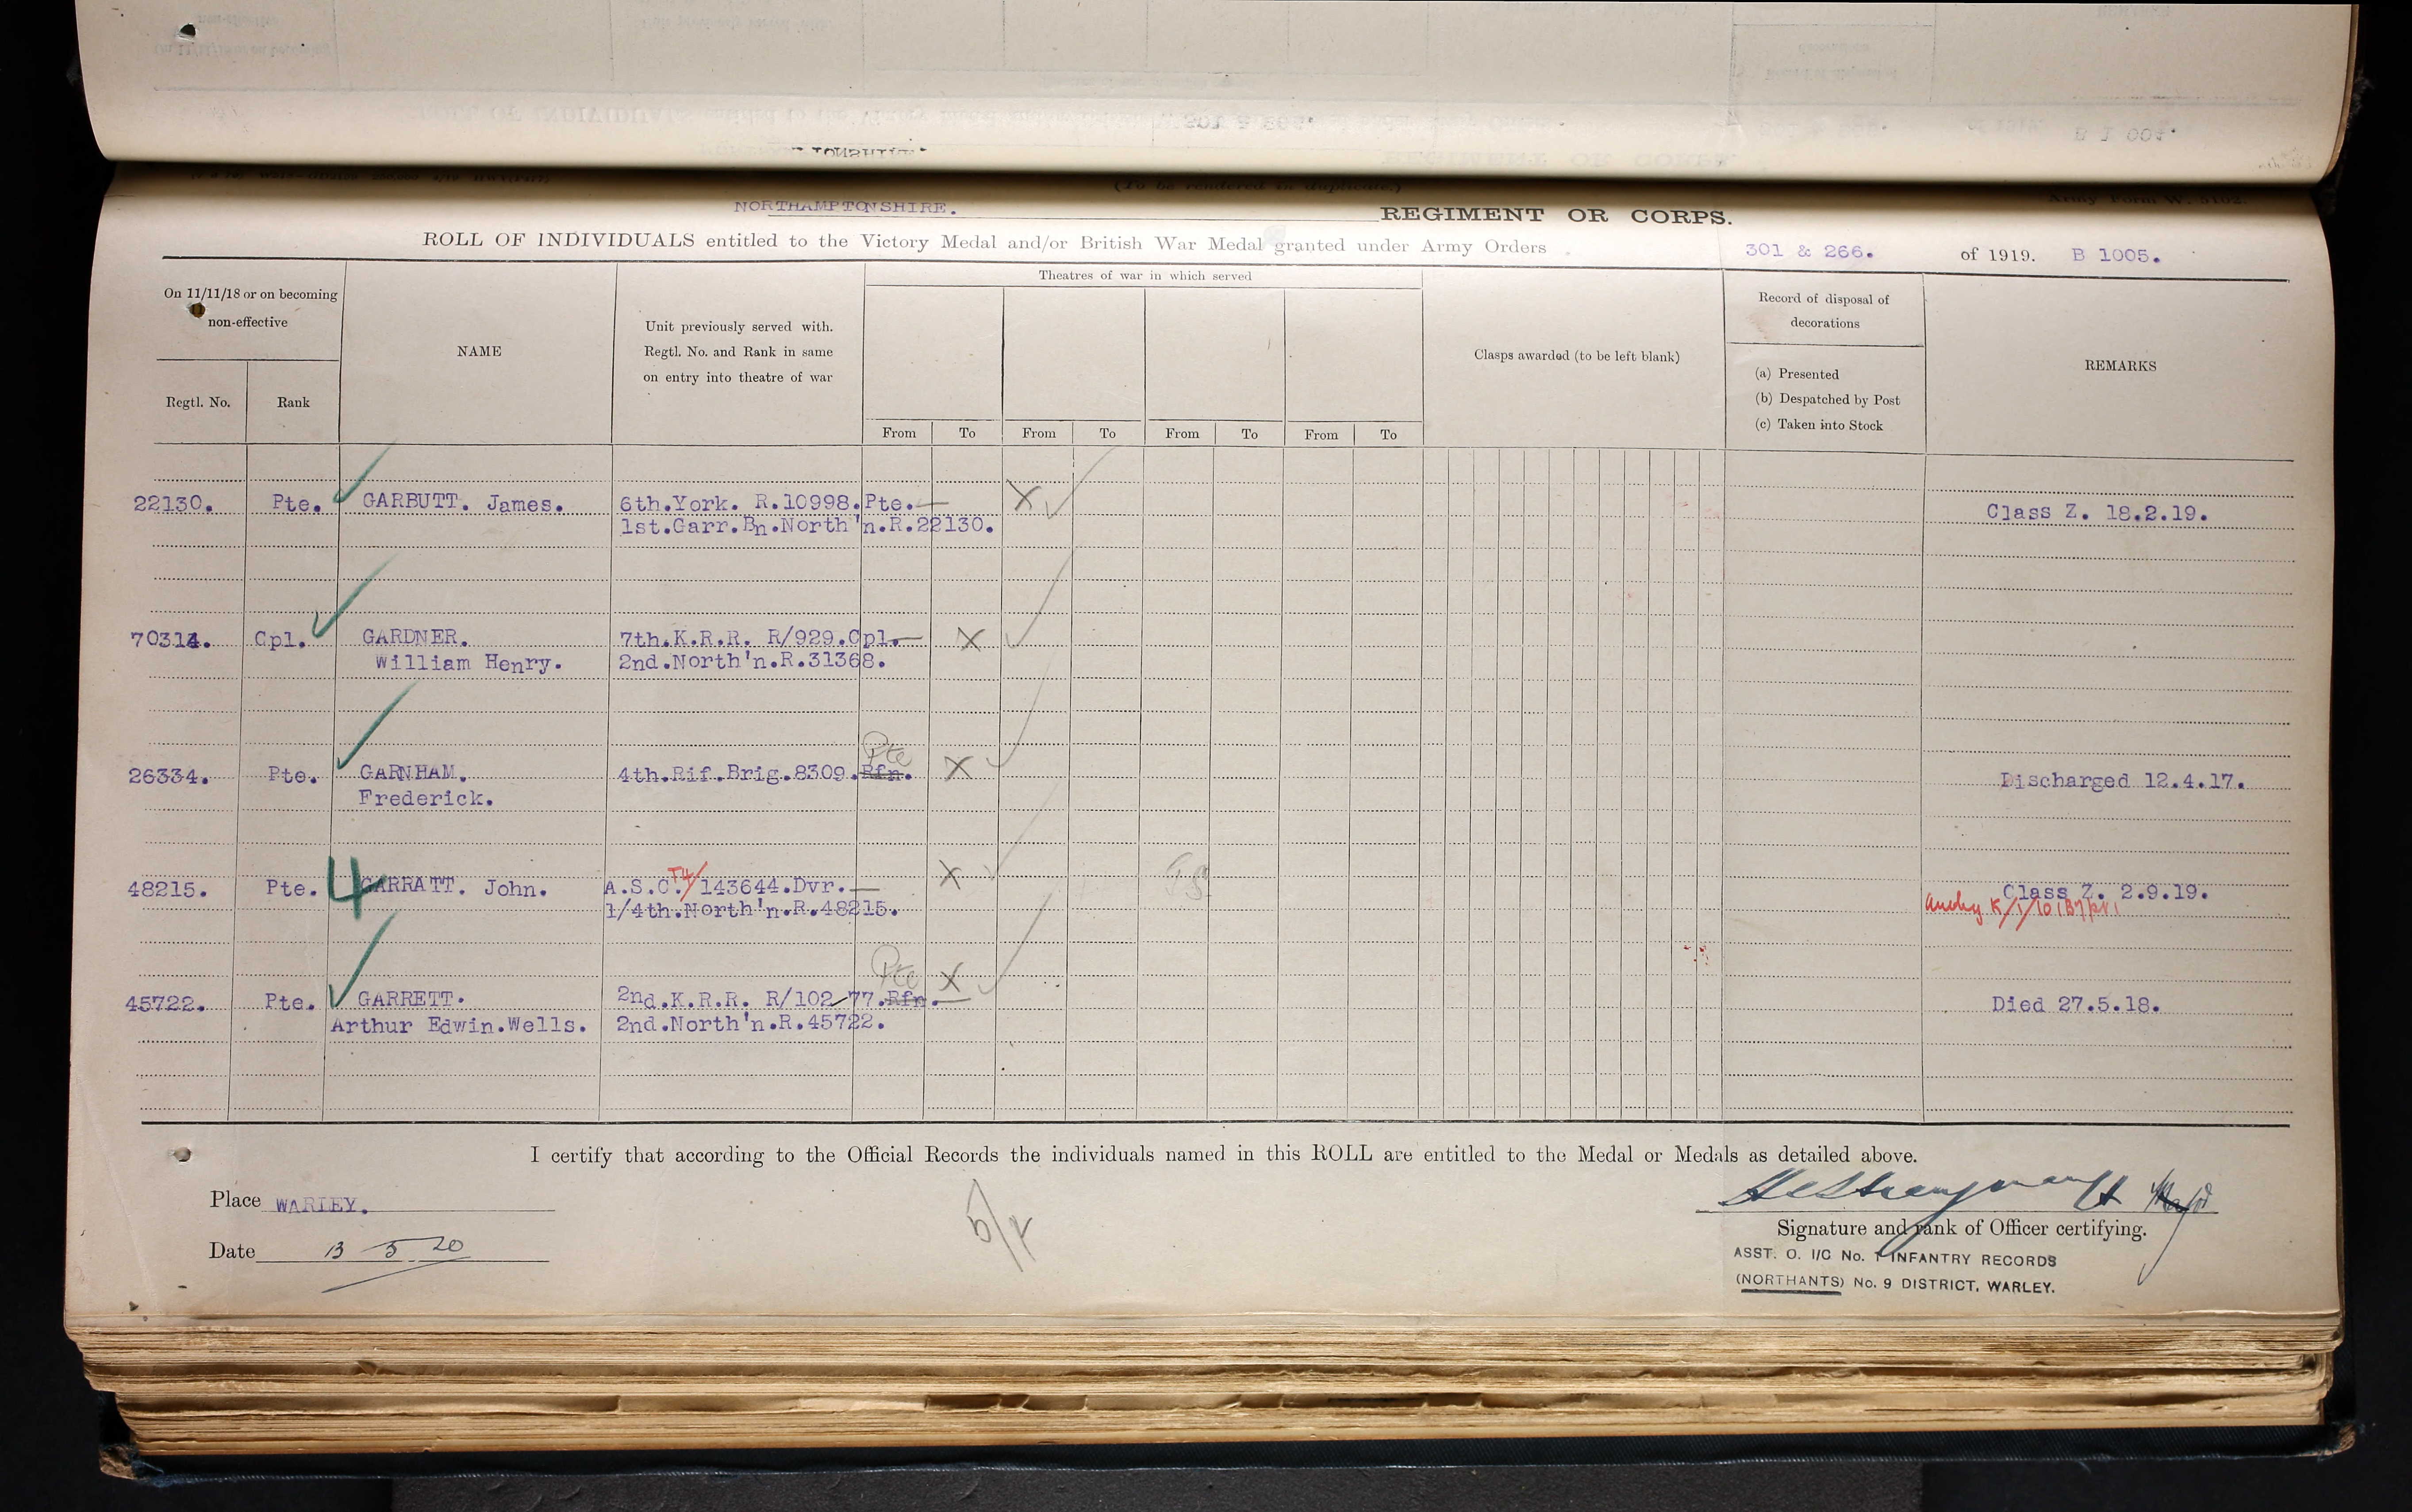 (To be rendered in duplicate.)
Army Form W. 5102.
NORTHAMPTONSHIRE. REGIMENT OR CORPS.
ROLL OF INDIVIDUALS entitled to the Victory Medal and/or British War Medal granted under Army Orders 301 & 266. of 1919. B 1005.
On 11/11/18 or on becoming non-effective
Regtl. No.
Rank
NAME
Unit previously served with.
Regtl. No. and Rank in same
on entry into theatre of war
Theatres of war in which served
From To From To From To From To
Clasps awarded (to be left blank)
Record of disposal of
decorations
(a) Presented
(b) Despatched by Post
(c) Taken into Stock
REMARKS
22130. Pte. GARBUTT. James. 6th.York. R.10998.Pte. X Class Z. 18.2.19.
1st.Garr.Bn.North'n.R.22130.
70314. Cpl. GARDNER. 7th.K.R.R. R/929.Cpl. X
William Henry. 2nd.North'n.R.31368.
Pte
26334. Pte. GARNHAM. 4th.Rif.Brig.8309.Rfn. X Discharged 12.4.17.
Frederick.
48215. Pte. 4 GARRATT. John. A.S.C. T4/143644.Dvr. X Class Z. 2.9.19.
1/4th.North'n.R.48215.
Pte
45722. Pte. GARRETT. 2nd.K.R.R. R/10277.Rfn. X Died 27.5.18.
Arthur Edwin.Wells. 2nd.North'n.R.45722.
I certify that according to the Official Records the individuals named in this ROLL are entitled to the Medal or Medals as detailed above.
Place WARLEY.
Date 13 5 20
Major
Signature and rank of Officer certifying.
ASST. O. I/C No. 1 INFANTRY RECORDS
(NORTHANTS) No. 9 DISTRICT, WARLEY.